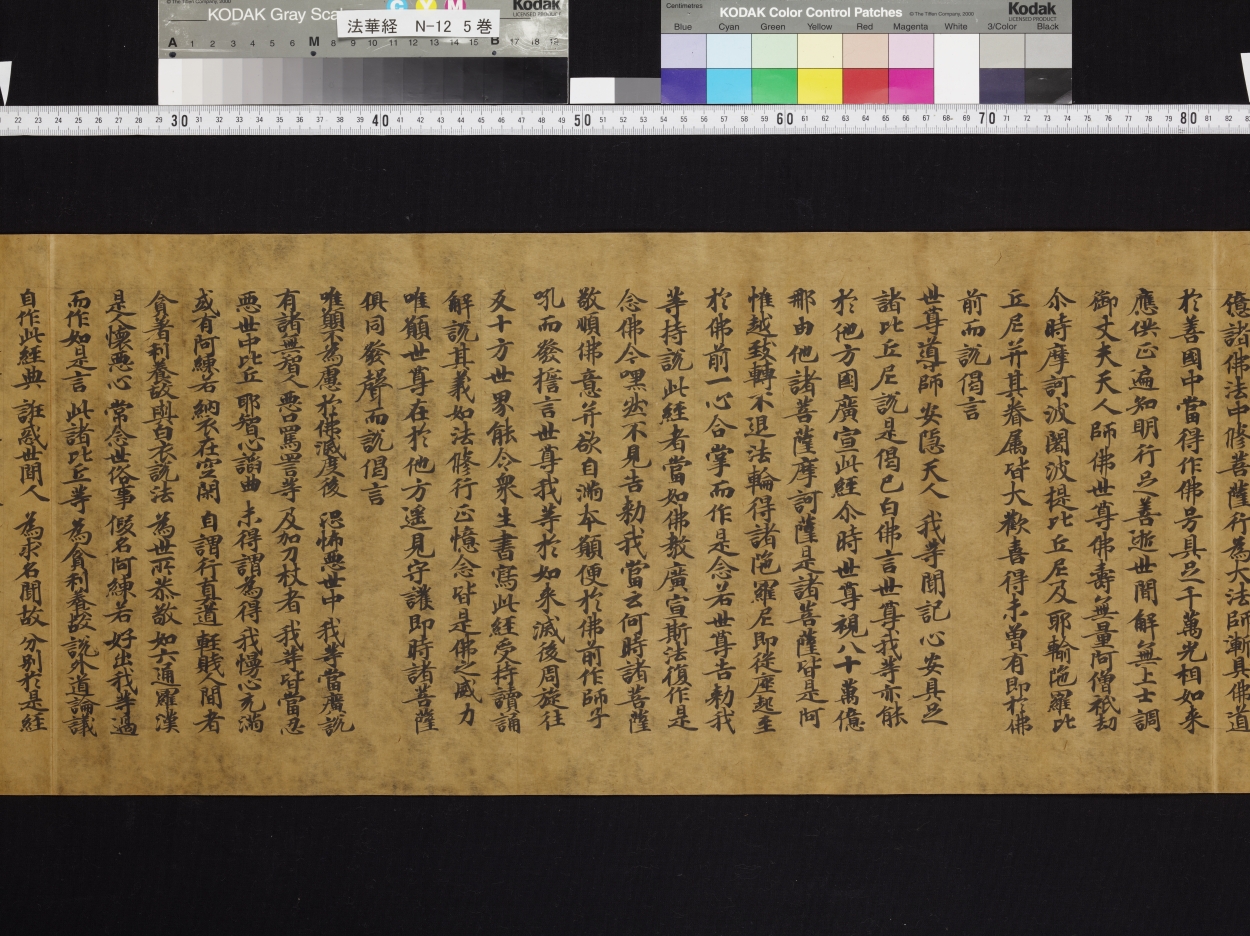 © The Tiffen Company, 2000
KODAK Gray Scale
C Y M
Kodak
LICENSED PRODUCT
法華経 N-12 5巻
A 1 2 3 4 5 6 M 8 9 10 11 12 13 14 15 B 17 18 19
Centimetres
KODAK Color Control Patches
© The Tiffen Company, 2000
Kodak
LICENSED PRODUCT
Blue Cyan Green Yellow Red Magenta White 3/Color Black
22 23 24 25 26 27 28 29 30 31 32 33 34 35 36 37 38 39 40 41 42 43 44 45 46 47 48 49 50 51 52 53 54 55 56 57 58 59 60 61 62 63 64 65 66 67 68 69 70 71 72 73 74 75 76 77 78 79 80 81 82
億諸佛法中修菩薩行為大法師漸具佛道
於善國中當得作佛号具足千萬光相如来
應供正遍知明行足善逝世間解無上士調
御丈夫天人師佛世尊佛壽無量阿僧祇劫
尒時摩訶波闍波提比丘尼及耶輸陁羅比
丘尼并其眷属皆大歡喜得未曾有即於佛
前而說偈言
世尊導師 安隠天人 我等聞記 心安具足
諸比丘尼說是偈已白佛言世尊我等亦能
於他方國廣宣此經尒時世尊視八十萬億
那由他諸菩薩摩訶薩是諸菩薩皆是阿
惟越致轉不退法輪得諸陁羅尼即從座起至
於佛前一心合掌而作是念若世尊告勑我
等持說此經者當如佛教廣宣斯法復作是
念佛今嘿然不見告勑我當云何時諸菩薩
敬順佛意并欲自滿本願便於佛前作師子
吼而發擔言世尊我等於如来滅後周旋往
反十方世界能令衆生書寫此經受持讀誦
解說其義如法修行正憶念皆是佛之威力
唯願世尊在於他方遥見守護即時諸菩薩
俱同發聲而說偈言
唯願不為慮 於佛滅度後 恐怖惡世中 我等當廣說
有諸無智人 惡口罵詈等 及加刀杖者 我等皆當忍
惡世中比丘 耶智心謟曲 未得謂為得 我慢心充滿
或有阿練若 納衣在空閑 自謂行真道 輕賤人間者
貪著利養故 與白衣說法 為世所恭敬 如六通羅漢
是人懷惡心 常念世俗事 假名阿練若 好出我等過
而作如是言 此諸比丘等 為貪利養故 說外道論議
自作此經典 誑惑世間人 為求名聞故 分別於是經